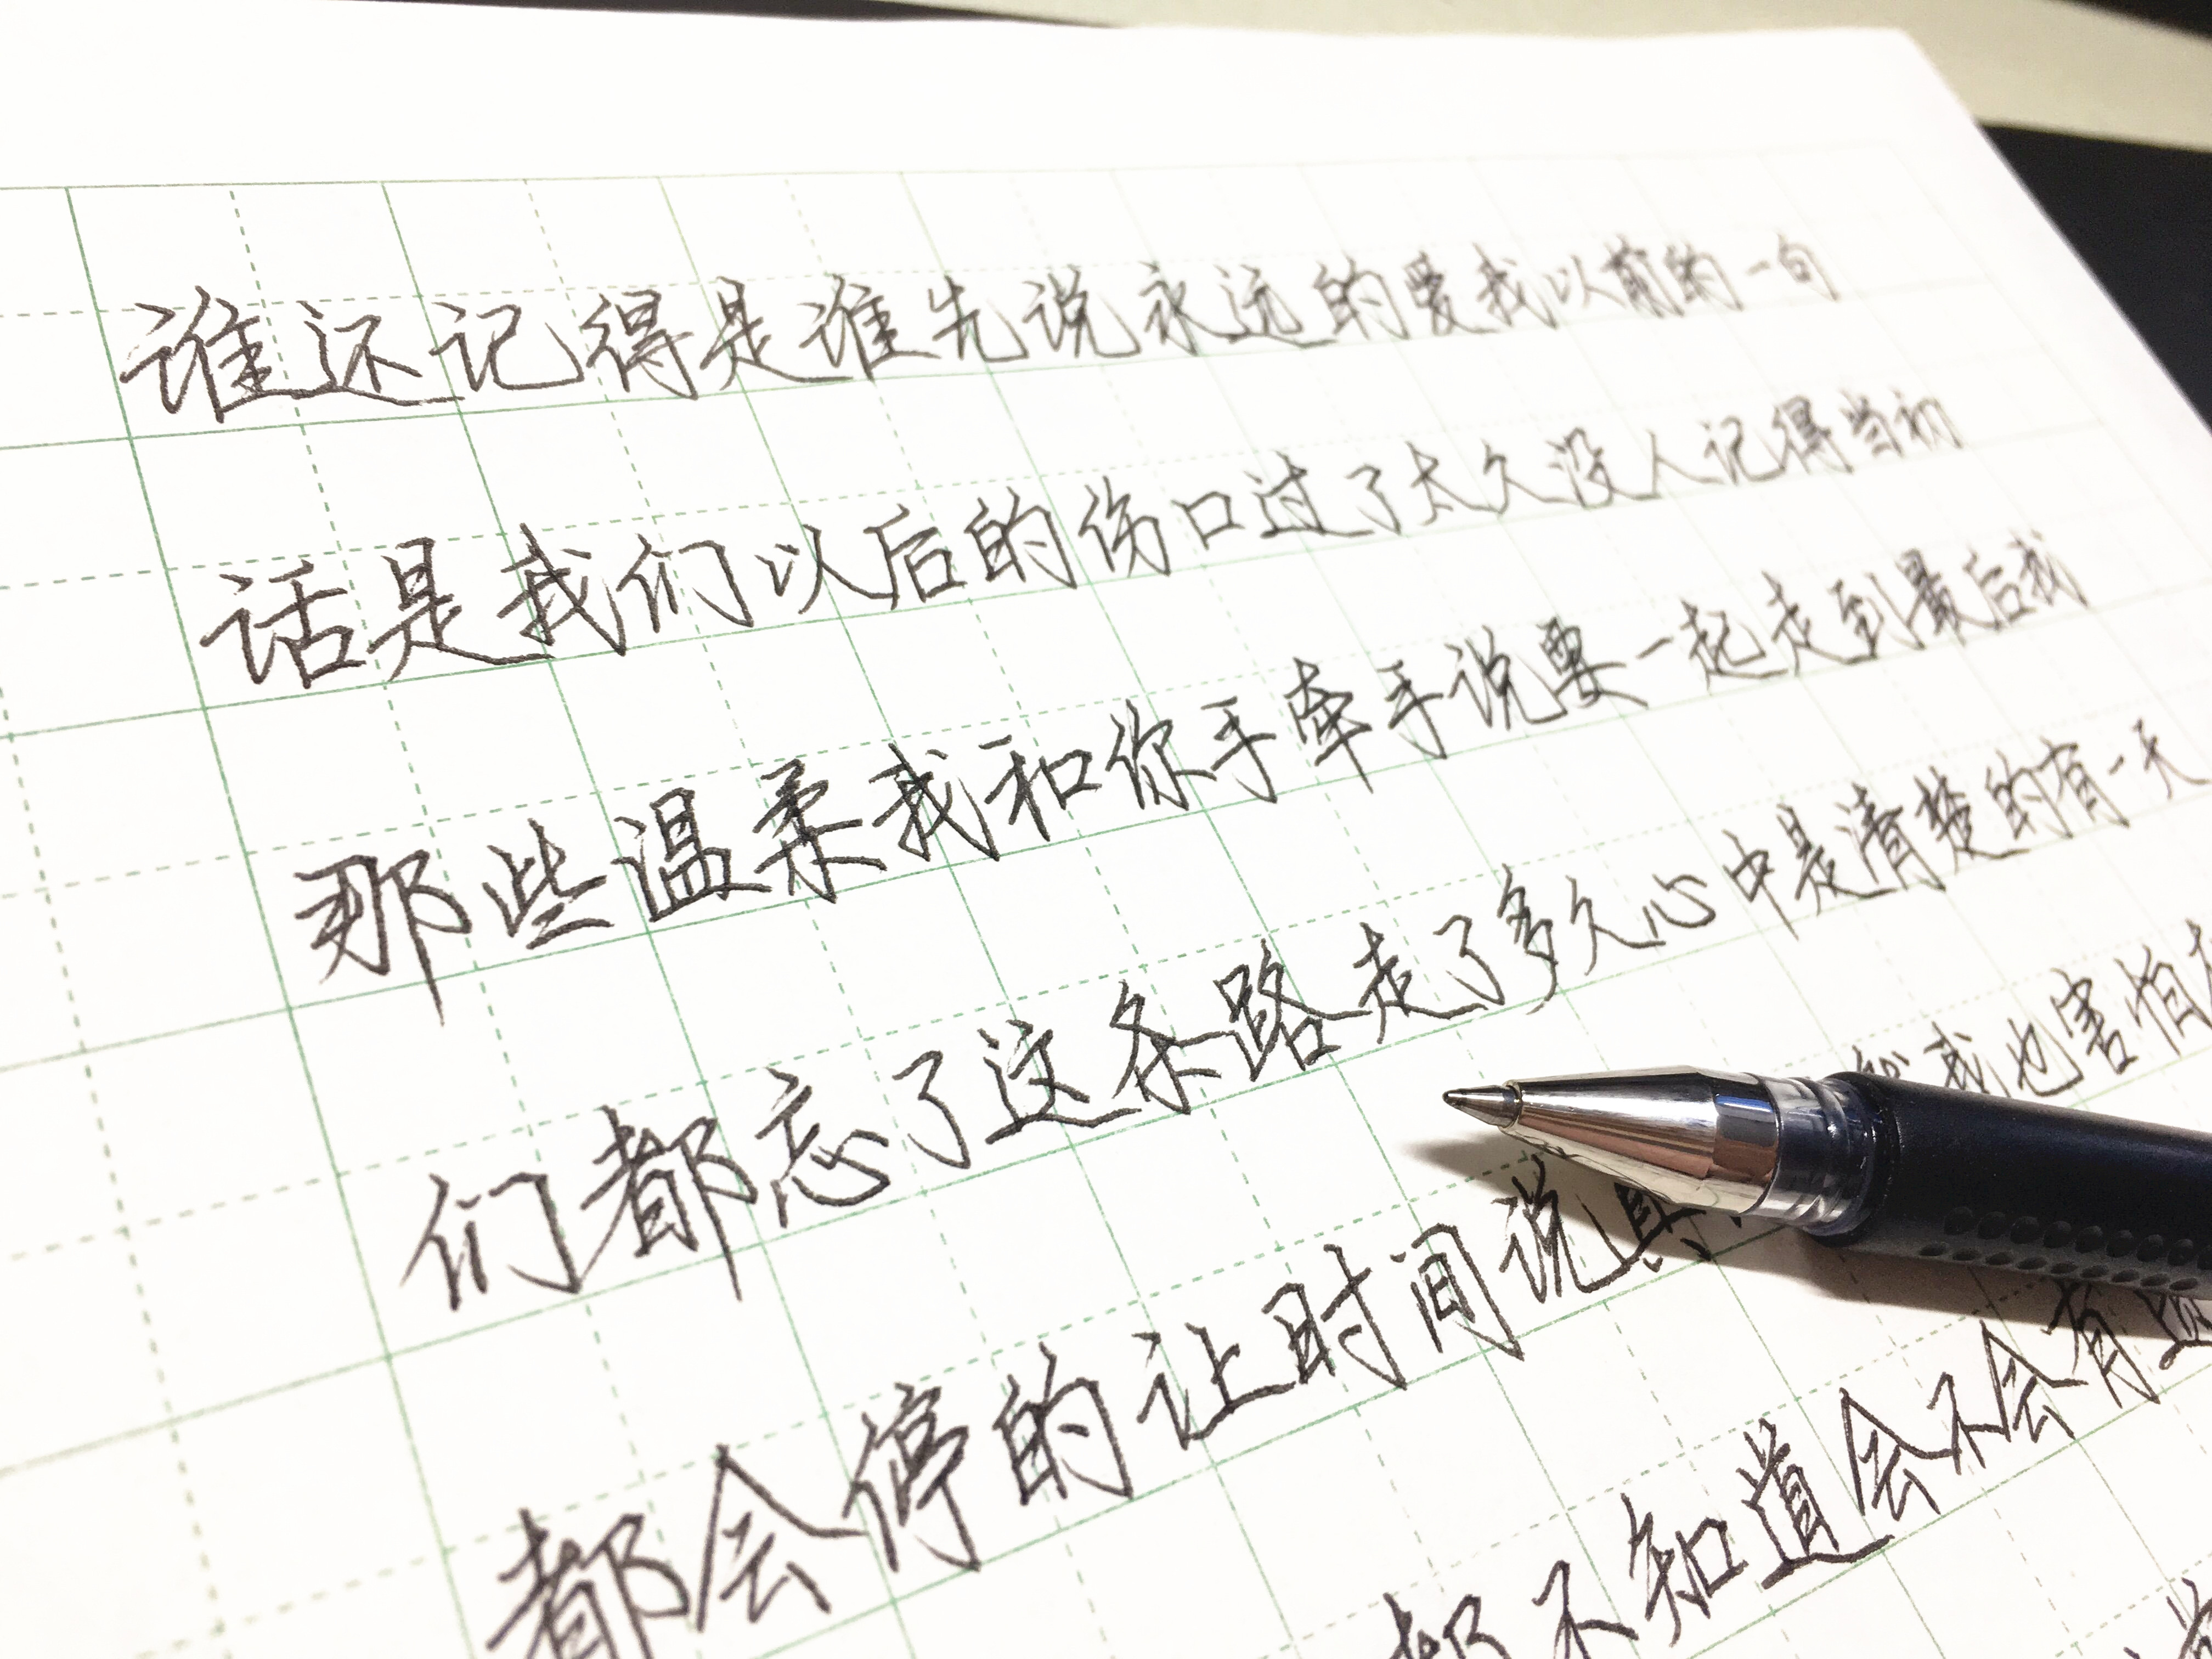 谁还记得是谁先说永远的爱我以前的一句
话是我们以后的伤口过了太久没人记得当初
那些温柔我和你手牵手说要一起走到最后我
们都忘了这条路走了多久心中是清楚的有一天
我也害怕
都会停的让时间说真
都不知道会不会有